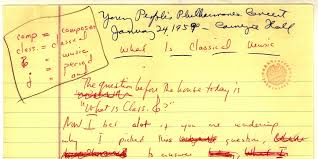 comp = composer
class. = classical
= music
= period
= and
Young People's Philharmonic Concert
January 24, 1959 - Carnegie Hall
What Is Classical Music
The question before the house today is
"What is Class.
Now I bet a lot of you are wondering
why I picked this question,
to answer